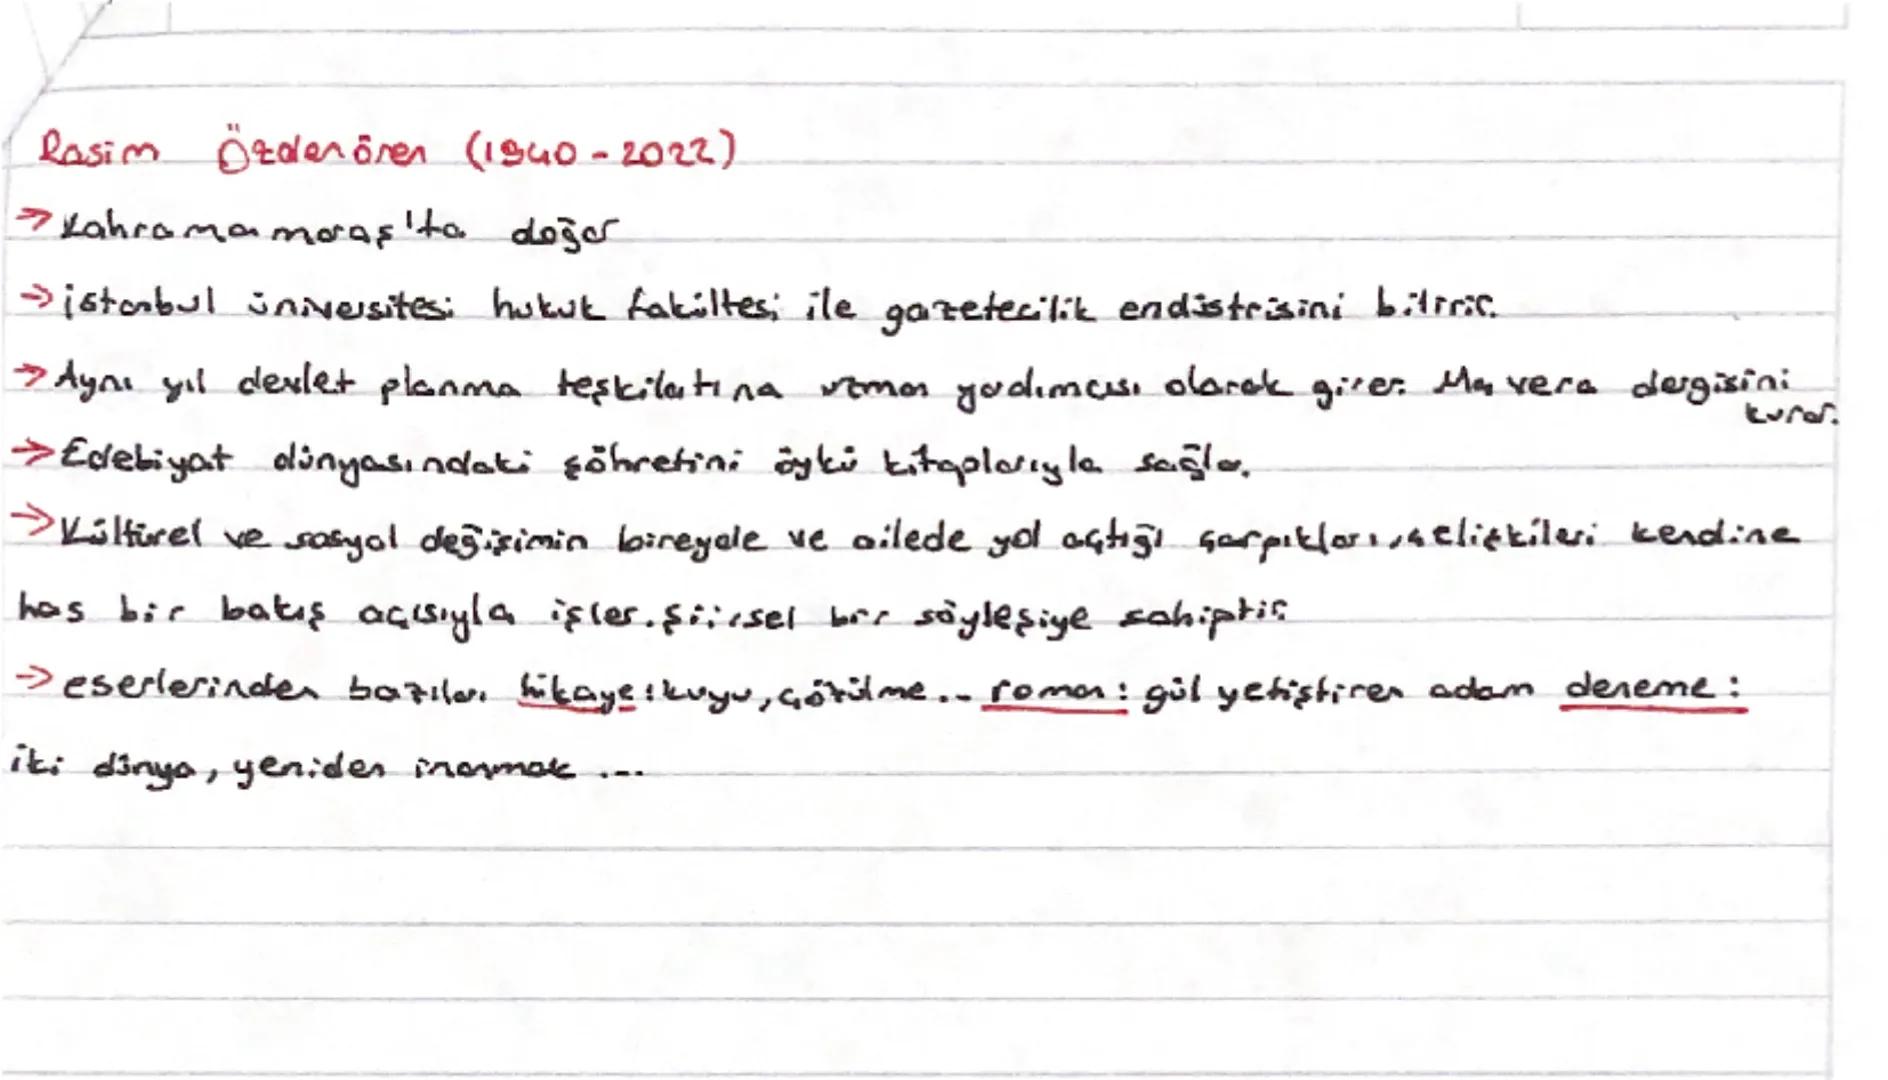 Rasim Özdenören (1940-2022)
→ Kahramanmaraş'ta doğar
→ istanbul üniversitesi hukuk fakültesi ile gazetecilik endüstrisini bitirir.
→ Aynı yıl devlet planma teşkilatına uzman yardımcısı olarak girer. Mavera dergisini
kurar.
→ Edebiyat dünyasındaki şöhretini öykü kitaplarıyla sağlar.
→ Kültürel ve sosyal değişimin bireyde ve ailede yol açtığı çarpıkları, çelişkileri kendine
has bir bakış açısıyla işler. Şiirsel bir söyleşiye sahiptir
→ eserlerinden bazıları hikaye: kuyu, çözülme... roman: gül yetiştiren adam deneme:
iki dünya, yeniden inanmak ...